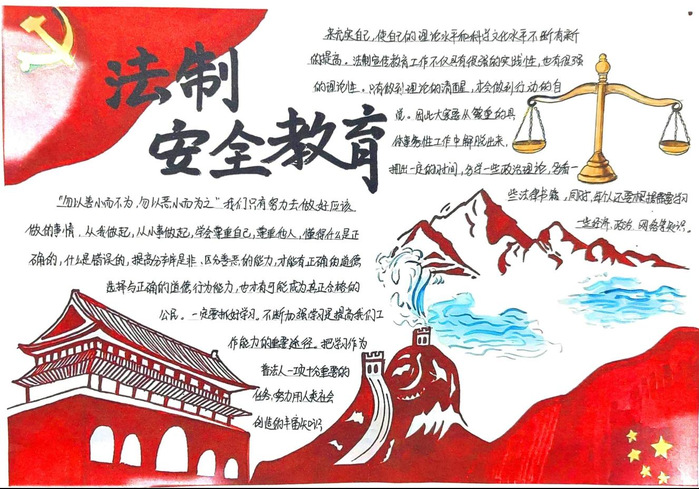 法制
安全教育
来充实自己，使自己的理论水平和科学文化水平不断有新
的提高。法制宣传教育工作不仅具有很强的实践性，也有很强
的理论性。只有做到理论的清醒，才会做到行动的自
觉。因此大家要从繁重的具
体事务性工作中解脱出来，
挤出一定的时间，多学一些政治理论，多看一
些法律书籍，同时，
一些经济、政治、网络等知识。
"勿以善小而不为，勿以恶小而为之"我们只有努力去做好应该
做的事情，从我做起，从小事做起，学会尊重自己，尊重他人，懂得什么是正
确的，什么是错误的，提高分辨是非、区分善恶的能力，才能有正确的道德
选择与正确的道德行为能力，也才有可能成为真正合格的
公民。一定要抓好学习。不断加强学习是提高我们工
作能力的重要途径。把学习作为
普法人一项十分重要的
任务，努力用人类社会
创造的丰富知识